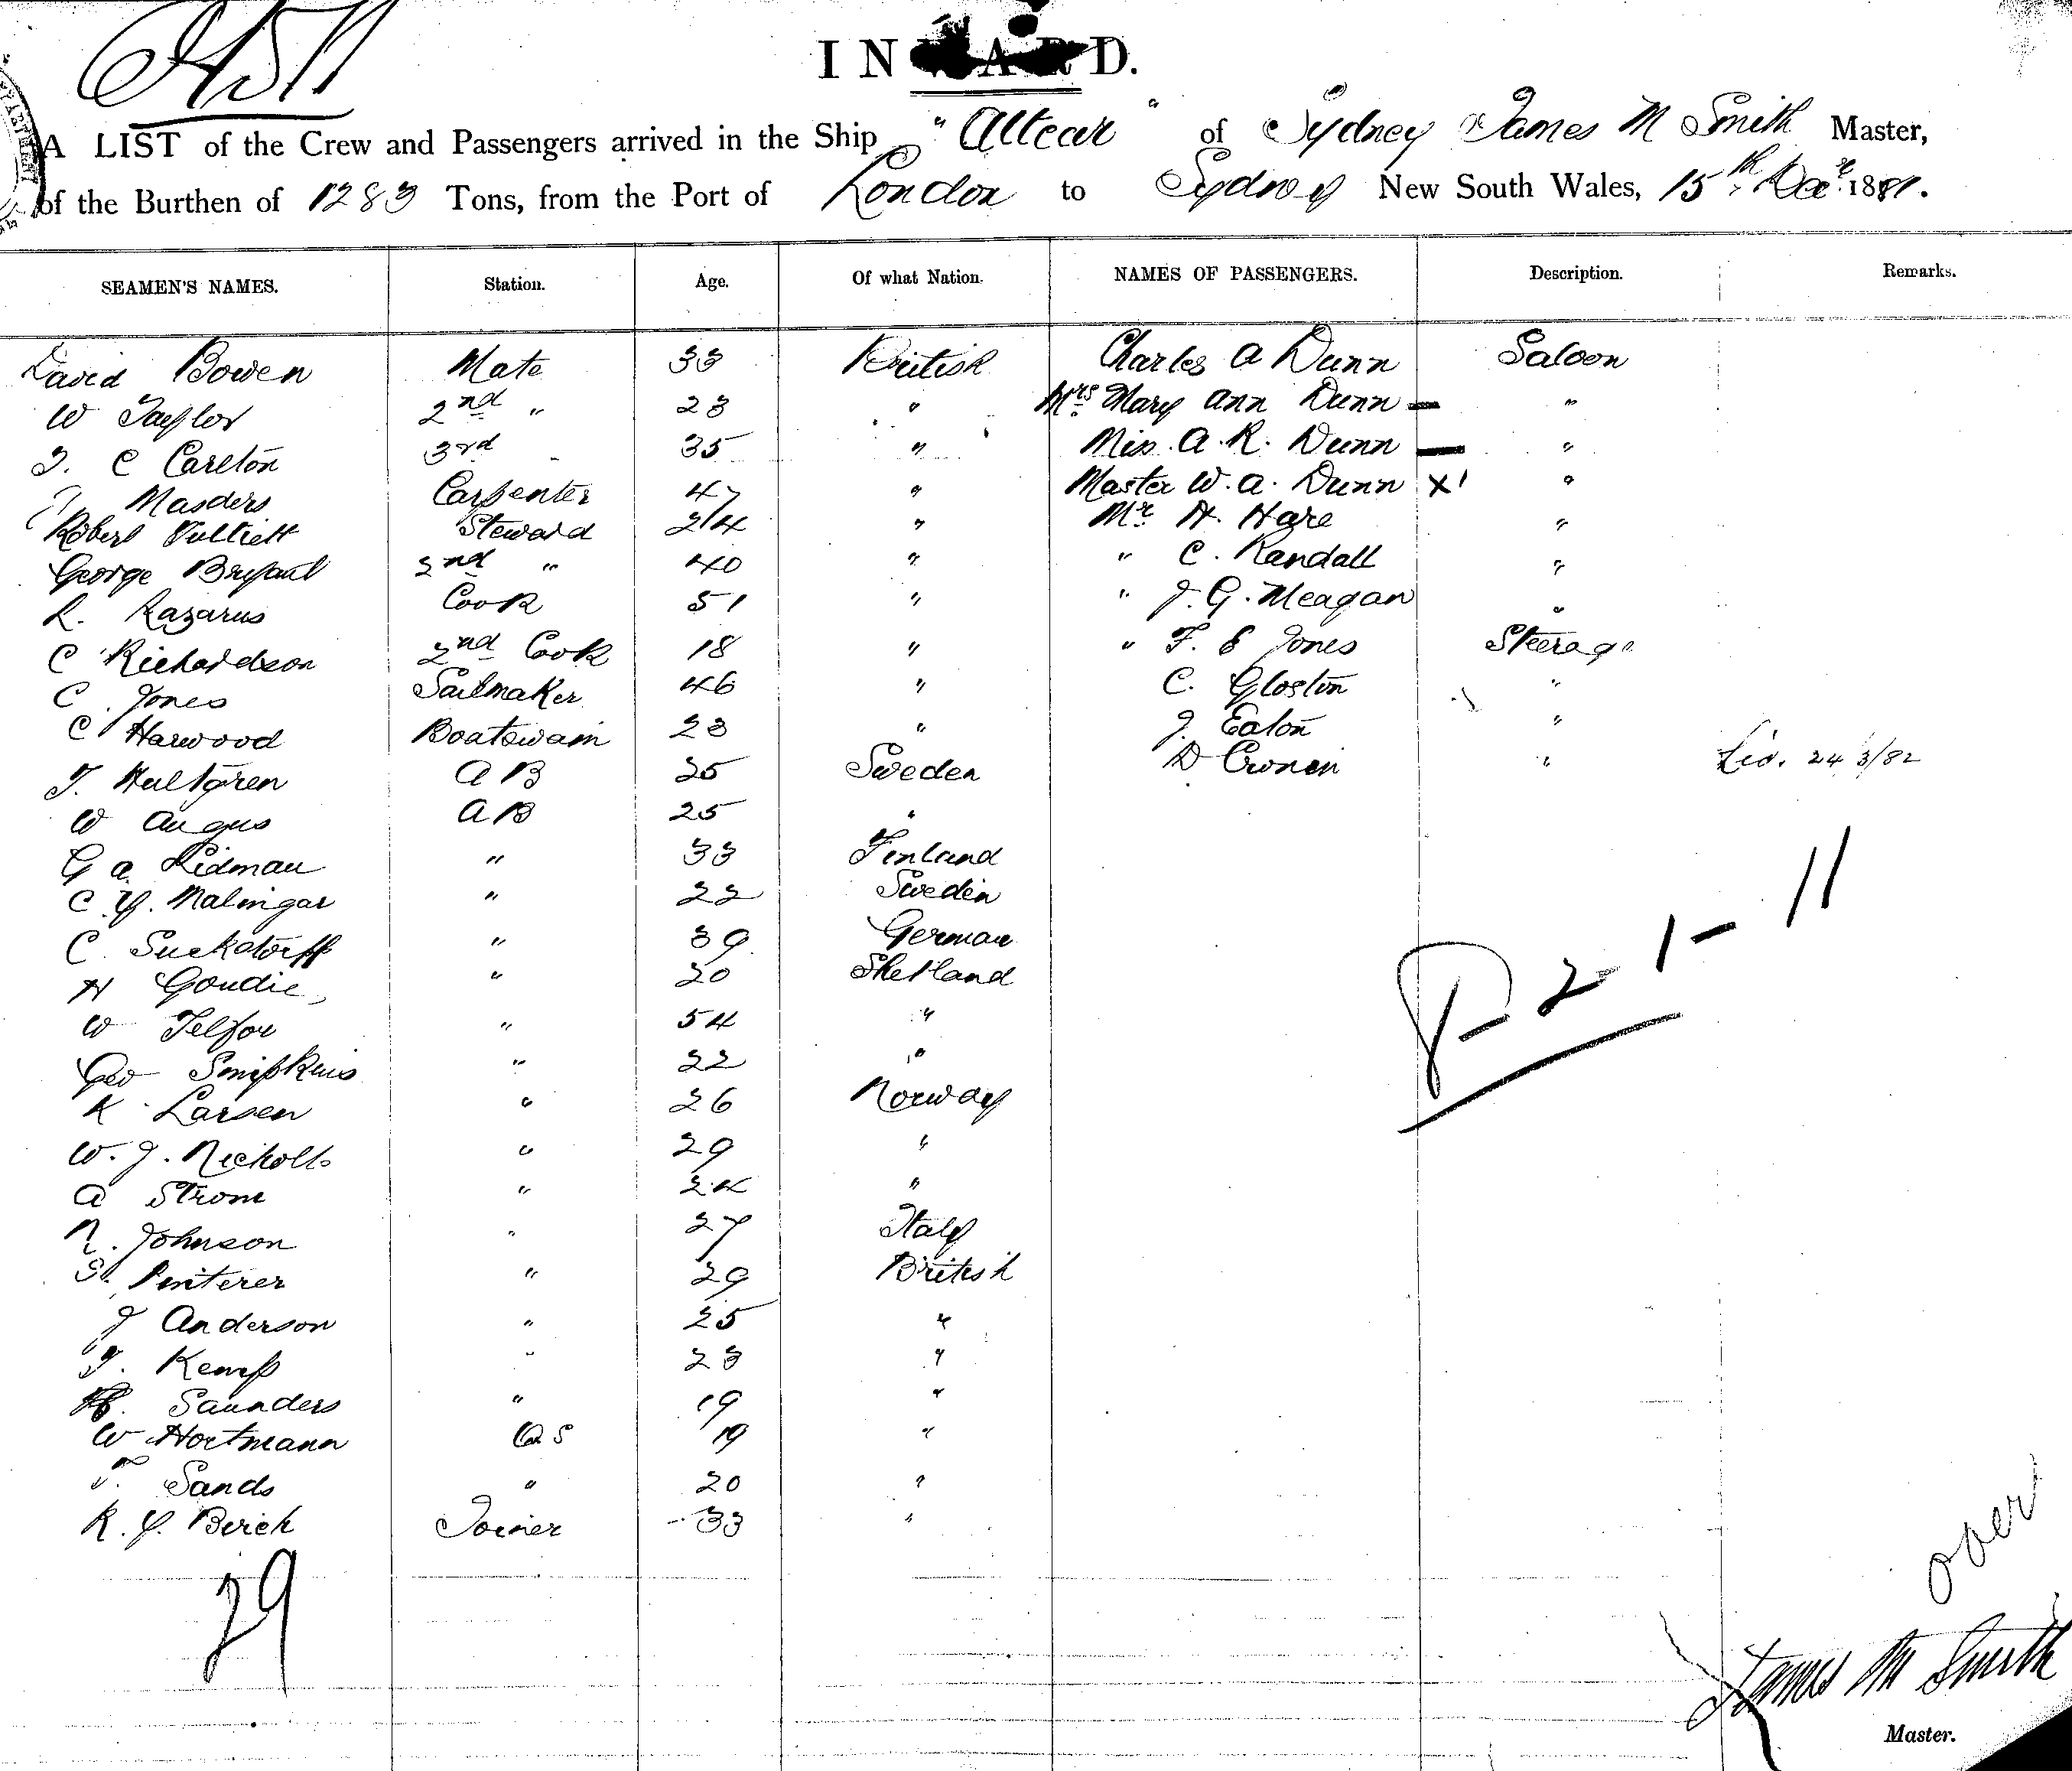 INWARD.
A LIST of the Crew and Passengers arrived in the Ship "Altcar" of Sydney James M Smith Master,
of the Burthen of 1283 Tons, from the Port of London to Sydney New South Wales, 15th Decr. 1881.
SEAMEN'S NAMES. Station. Age. Of what Nation. NAMES OF PASSENGERS. Description. Remarks.
David Bowen Mate 33 British Charles A Dunn Saloon
W Taylor 2nd " 23 " Mrs Mary Ann Dunn — "
J. C Carlton 3rd 35 " Miss A. R. Dunn — "
Masders Carpenter 47 " Master W. A. Dunn X "
Robert Steward 24 " Mr. H. Hare "
George Bryant 2nd " 40 " " C. Randall "
L. Lazarus Cook 51 " " J. G. Meagan "
C Richardson 2nd Cook 18 " " F. E Jones Steerage
C Jones Sailmaker 46 " C. Gloston "
C Harwood Boatswain 23 " J. Eaton "
T. Hultgren A B 25 Sweden D Cronin " 24 3/82
W Angus A B 25 "
G a. Lidman " 33 Finland
C. Y. Malmgar " 22 Sweden
C. Suckdorff " 39 German
H Goudie " 20 Shetland
W Telfor " 54 "
Geo Simpkins " 22 "
K Larsen " 26 Norway
W. J. Nicholls " 29 "
A Strom " 24 "
N. Johnson " 27 Italy
S. " 29 British
J Anderson " 25 "
T. Kemp " 23 "
Saunders " 19 "
W Hortmann OS 19 "
Sands " 20 "
R. Y. Birch Joiner 33 "
29
8-2-1-11
over
James M Smith
Master.